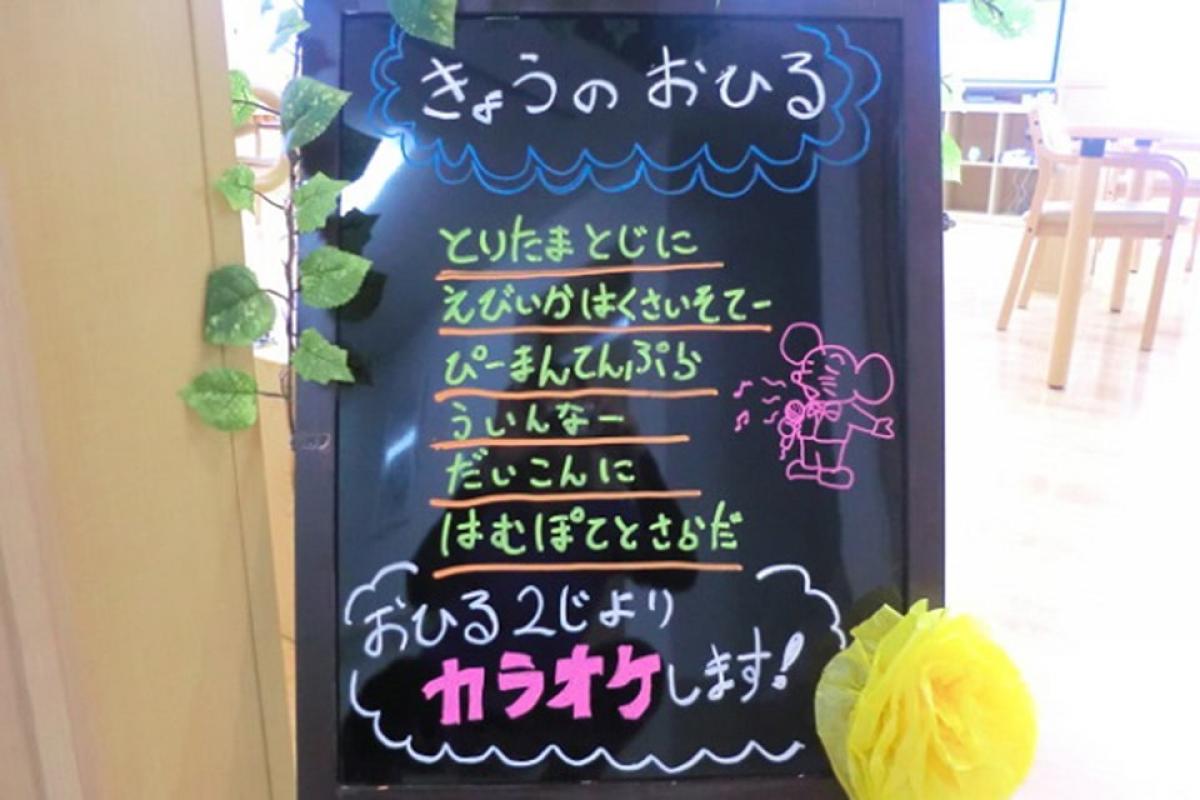 きょうの おひる
とりたまとじに
えびいかはくさいそてー
ぴーまんてんぷら
ういんなー
だいこんに
はむぽてとさらだ
おひる2じより
カラオケします!